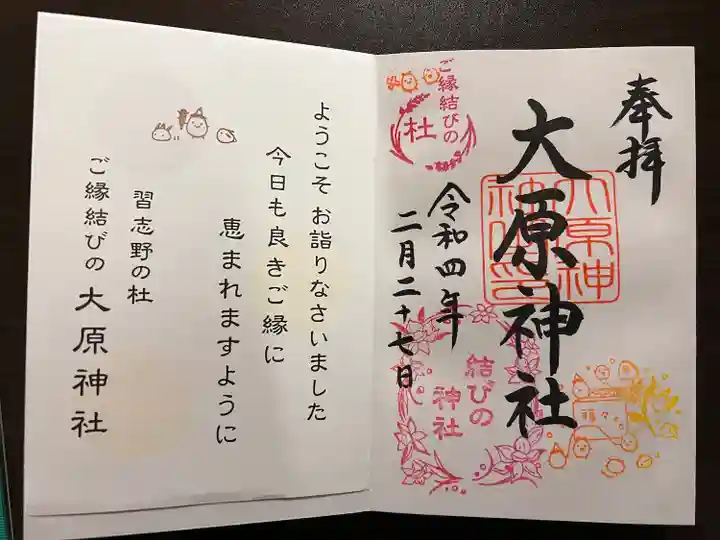 奉拝
大原神社
大原神
令和四年
二月二十七日
ご縁結びの
杜
結びの
神社
ようこそ お詣りなさいました
今日も良きご縁に
恵まれますように
習志野の杜
ご縁結びの 大原神社